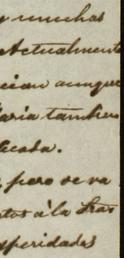 y muchas
Actualmente
cian aunque
María tambien
licada.
pero se va
tos á la Stas
speridades